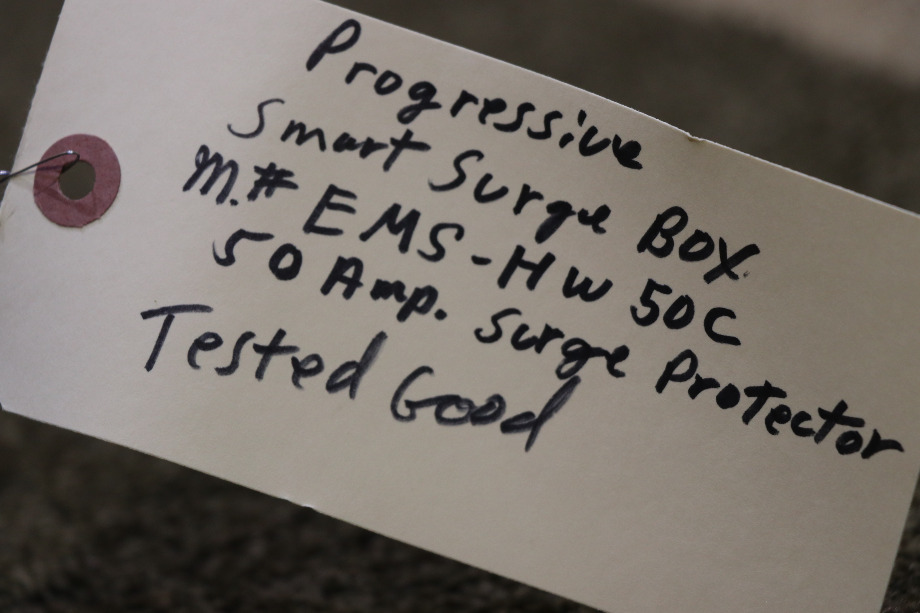 Progressive
Smart Surge Box
M.# EMS-HW 50C
50 Amp. Surge Protector
Tested Good